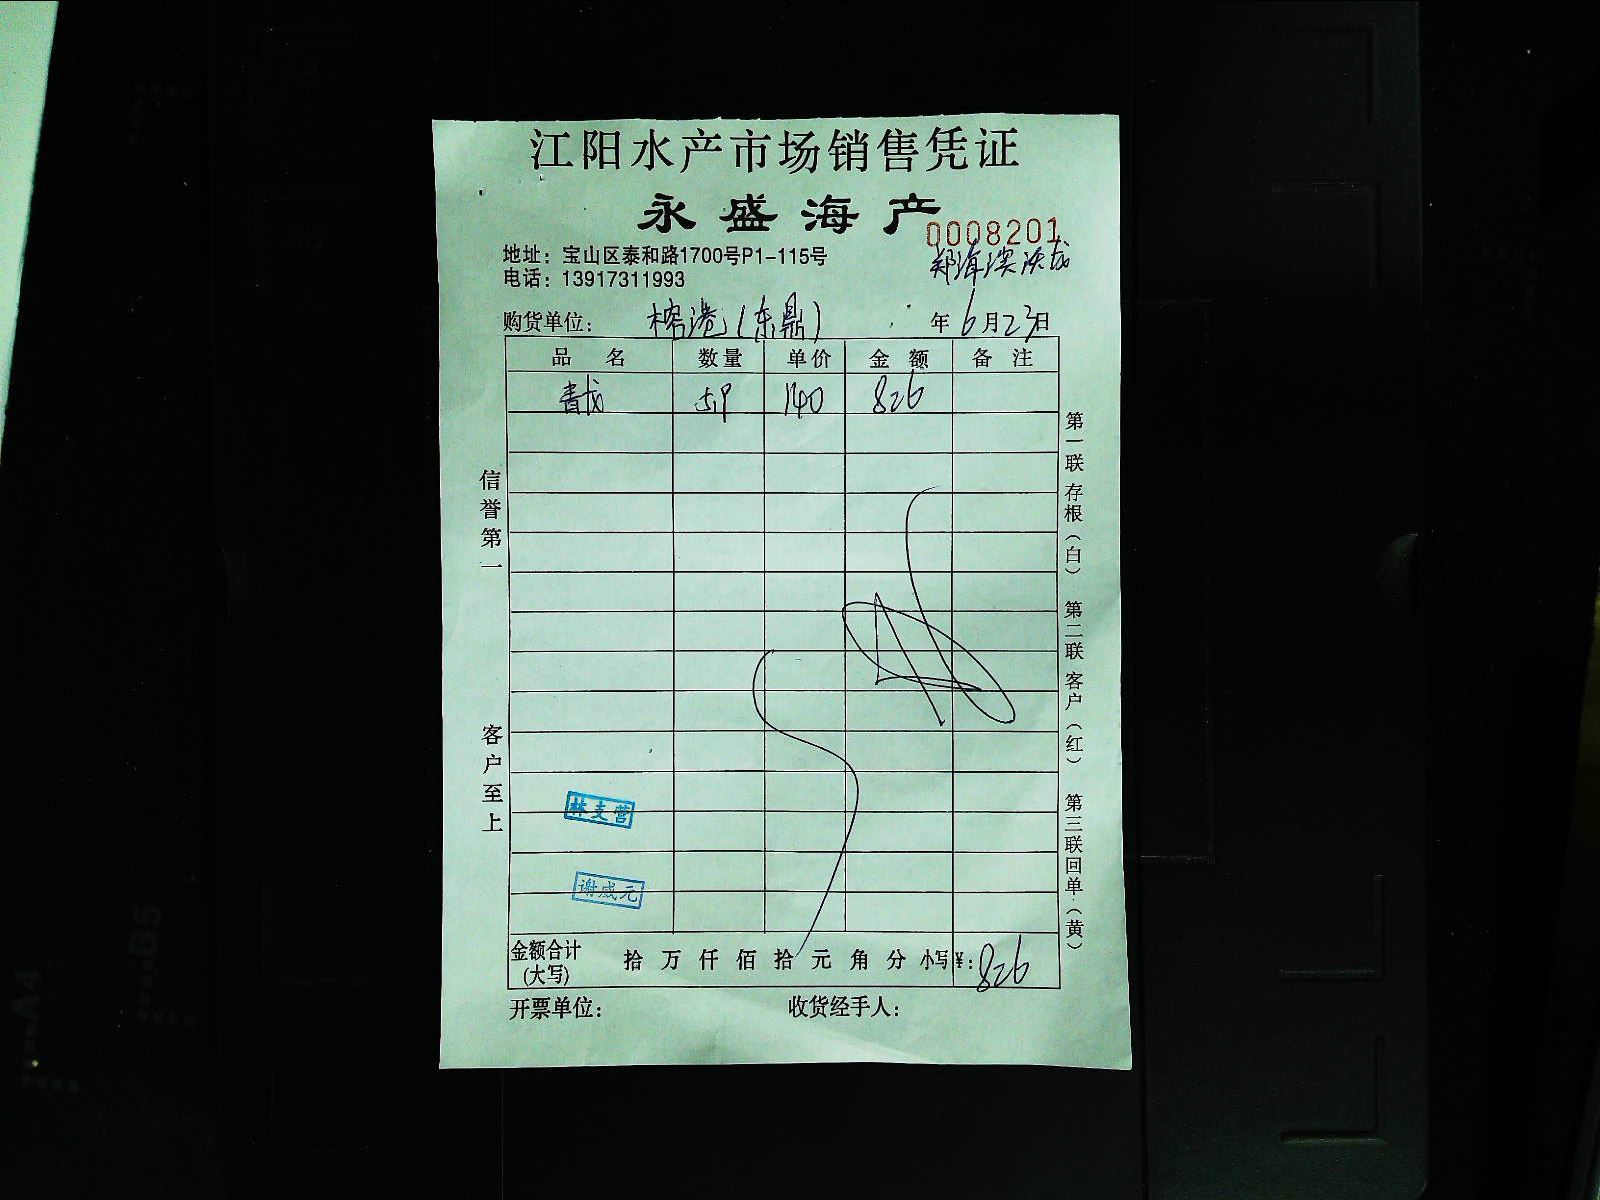 江阳水产市场销售凭证
永盛海产
0008201
地址：宝山区泰和路1700号P1-115号
电话：13917311993
购货单位： 榕港(东鼎) 年 6 月 23 日
品 名 数量 单价 金 额 备 注
140 826
信誉第一
客户至上
第一联 存根（白） 第二联 客户（红） 第三联 回单（黄）
林支营
谢威元
金额合计(大写) 拾 万 仟 佰 拾 元 角 分 小写¥：826
开票单位： 收货经手人：